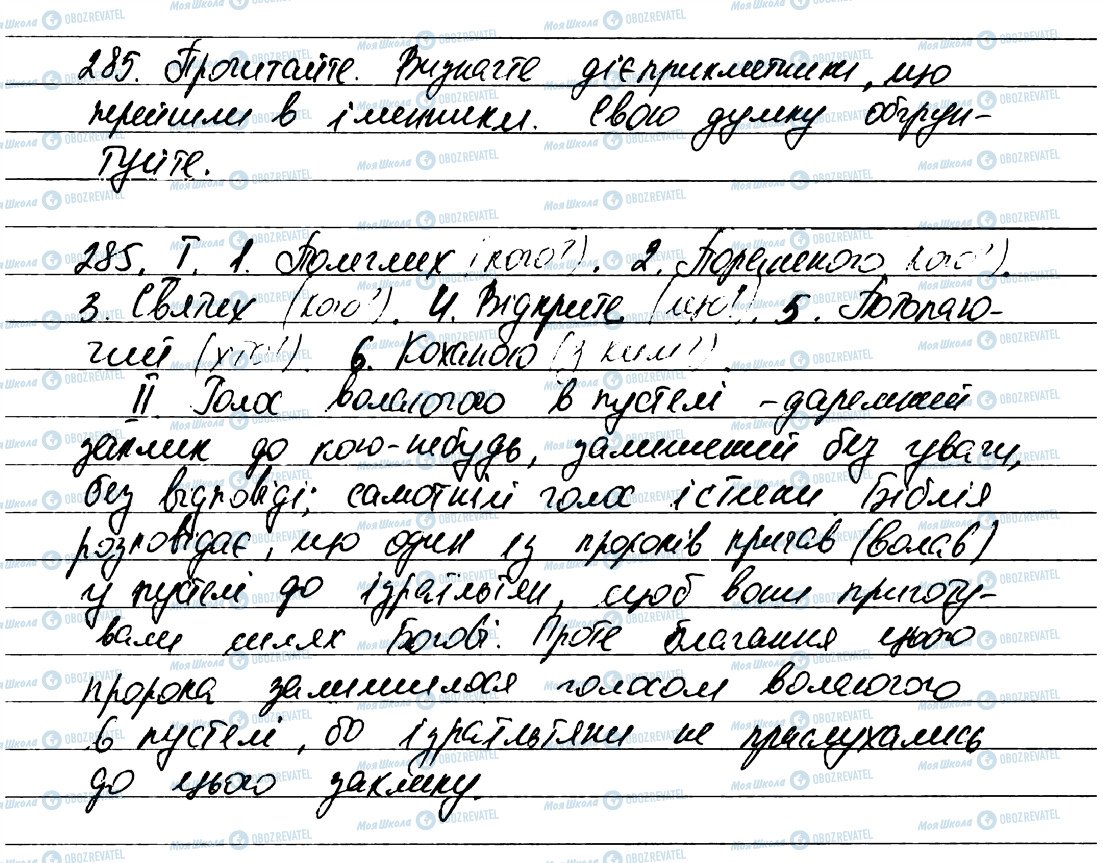 285. Прочитайте. Визначте дієприкметники, що
перейшли в іменники. Свою думку обґрун-
туйте.
285. І. 1. Полеглих (кого?). 2. Пораненого (кого?).
3. Святих (кого?). 4. Відкрите (що?). 5. Потопаю-
чий (хто?). 6. Коханою (з ким?).
ІІ Голос волаючого в пустелі - даремний
заклик до кого-небудь, залишений без уваги,
без відповіді; самотній голос істини. Біблія
розповідає, що один із пророків кричав (волав)
у пустелі до ізраїльтян, щоб вони приготу-
вали шлях Богові. Проте благання цього
пророка залишилося голосом волаючого
в пустелі, бо ізраїльтяни не прислухались
до цього заклику.